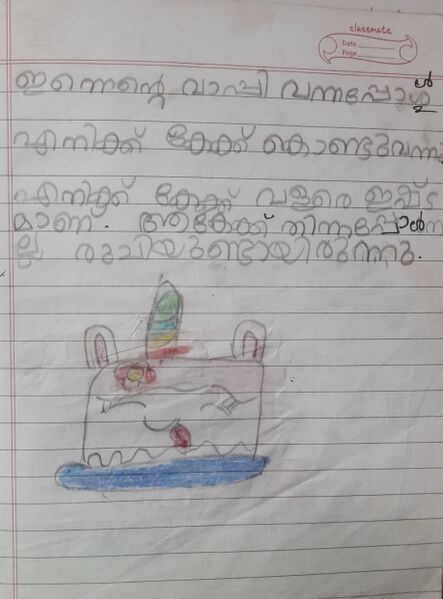 classmate
Date
Page
ഇന്നെന്റെ വാപ്പി വന്നപ്പോൾ
എനിക്ക് കേക്ക് കൊണ്ടുവന്നു
എനിക്ക് കേക്ക് വളരെ ഇഷ്ട
മാണ്. ആ കേക്ക് തിന്നപ്പോൾ ന
ല്ല രുചിയുണ്ടായിരുന്നു.